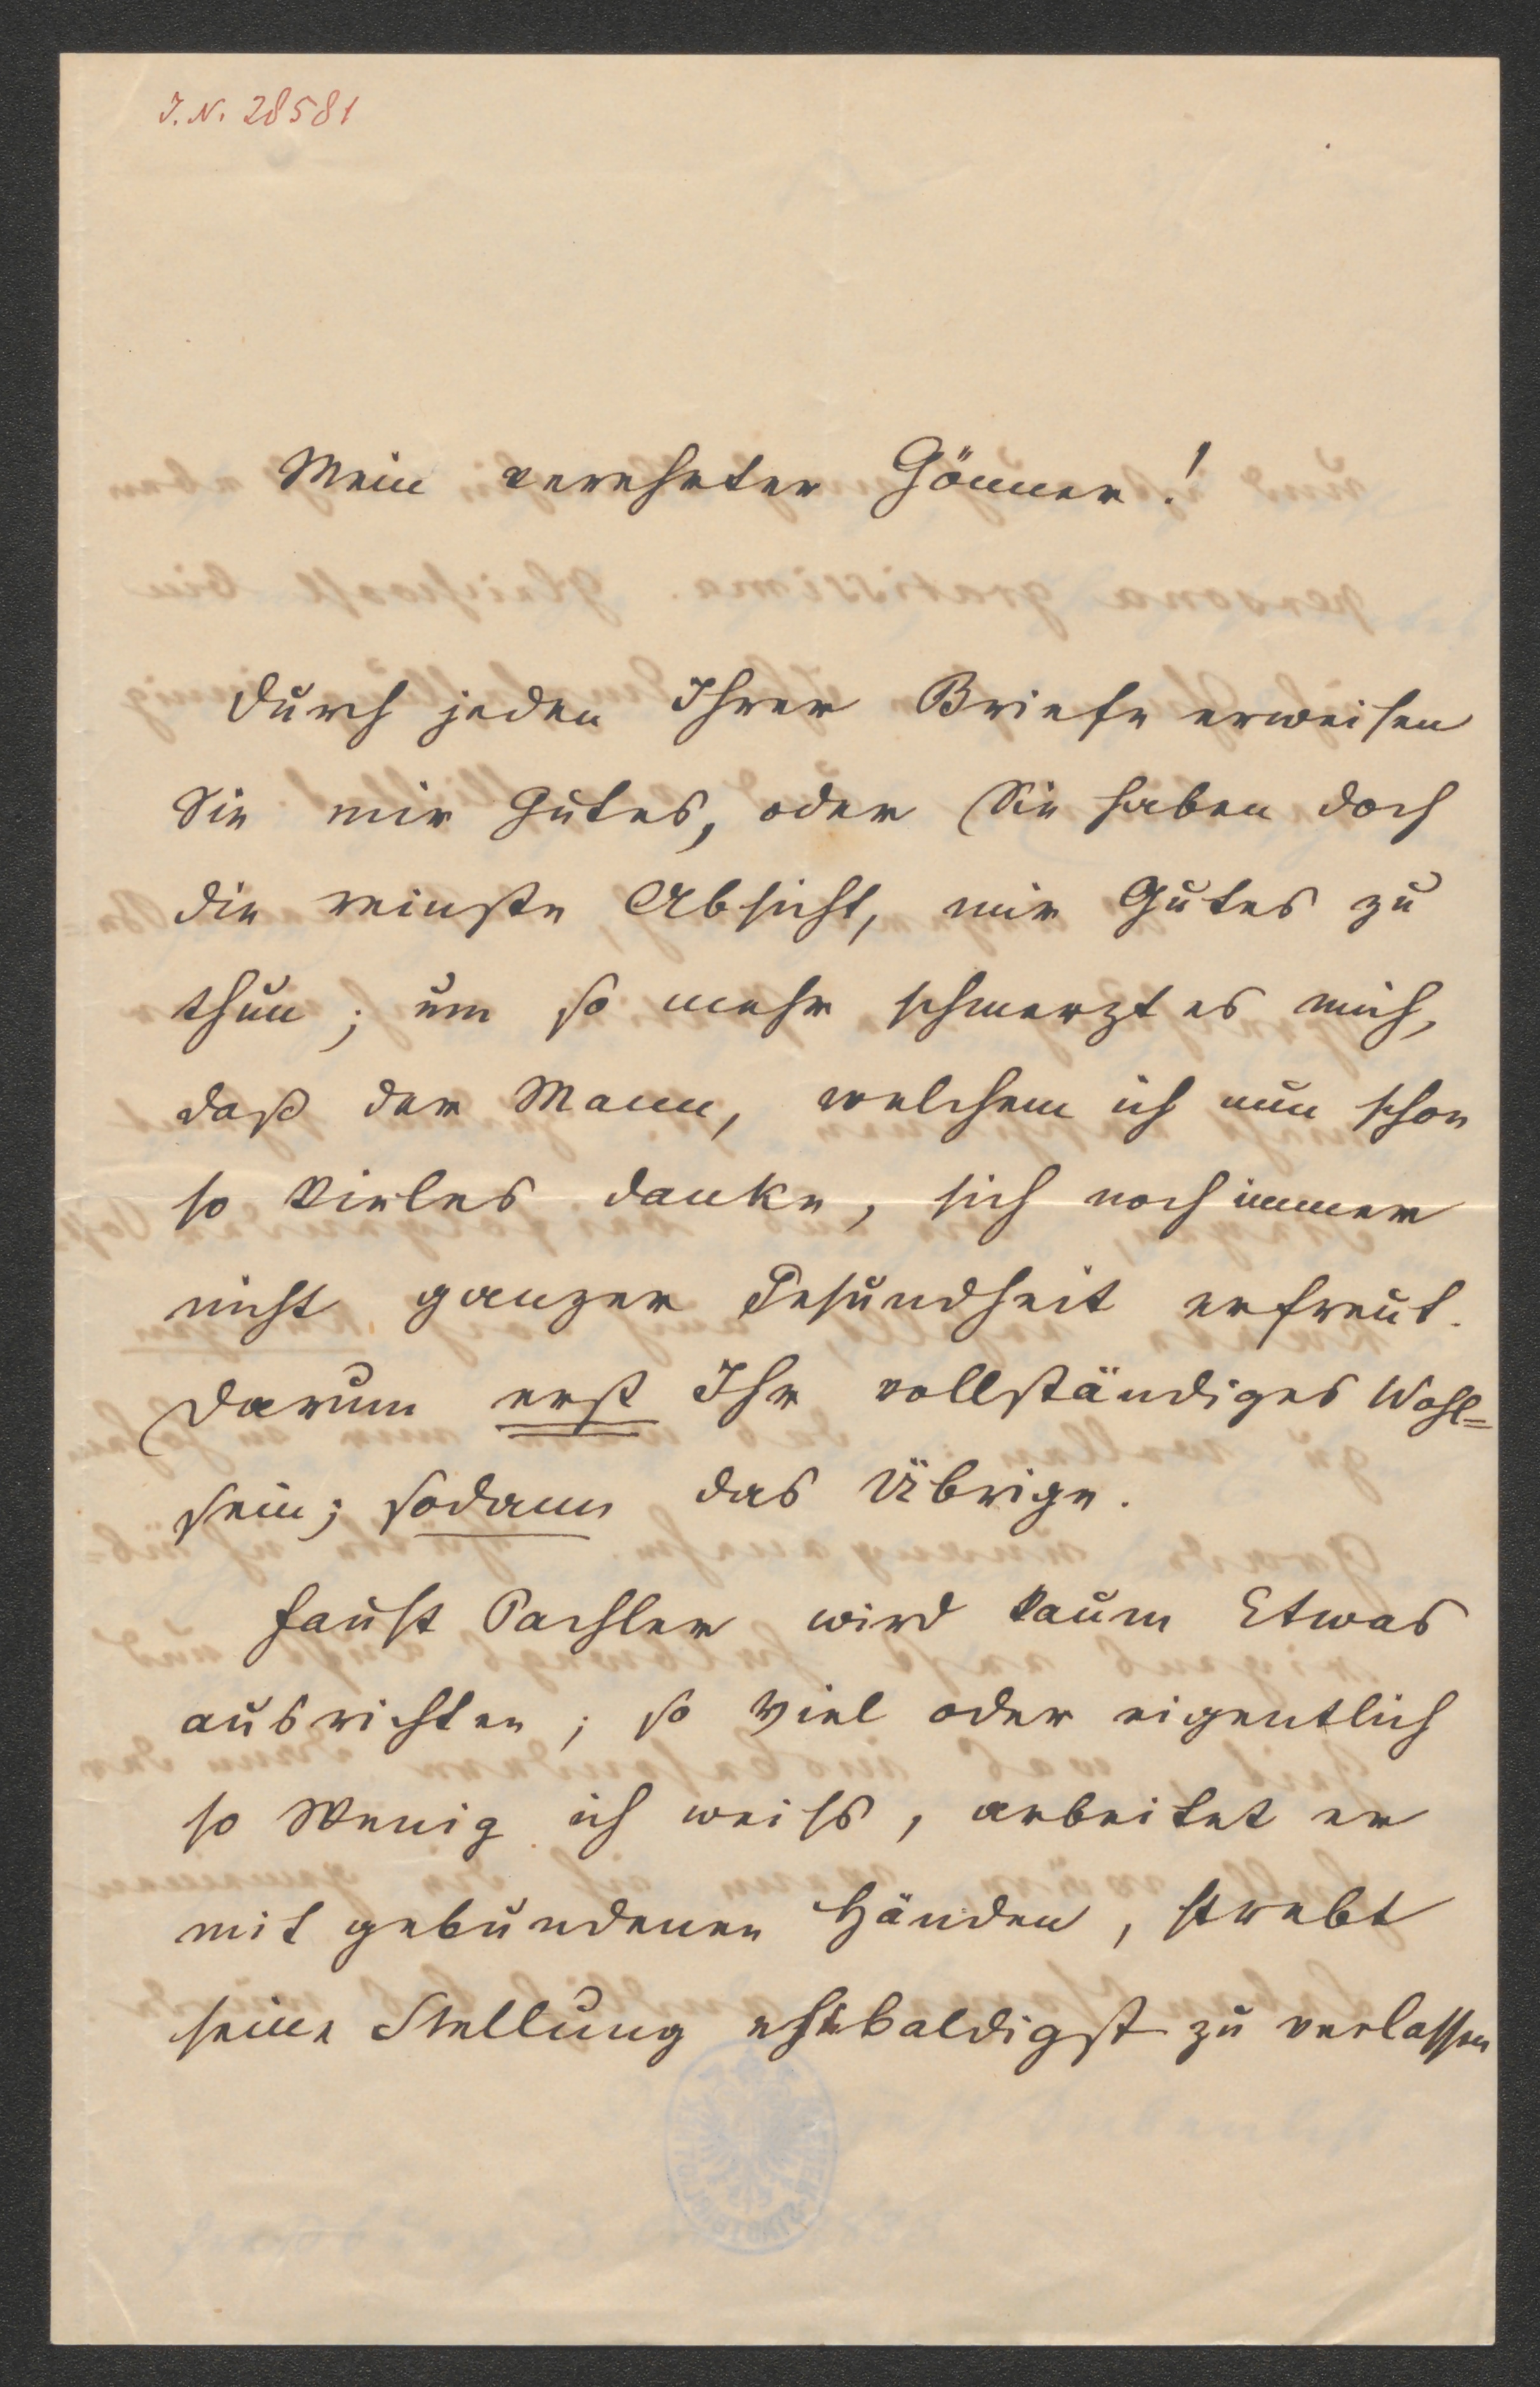 J. N. 28581
Mein verehrter Gönner!
Durch jeden Ihrer Briefe erweisen
Sie mir Gutes, oder Sie haben doch
die reinste Absicht, mir Gutes zu
thun; um so mehr schmerzt es mich,
daß der Mann, welchem ich nun schon
so Vieles danke, sich noch immer
nicht ganzer Gesundheit erfreut.
Darum erst Ihr vollständiges Wohl=
sein; sodann das Übrige.
Faust Pachler wird kaum Etwas
ausrichten; so Viel oder eigentlich
so Wenig ich weiss, arbeitet er
mit gebundenen Händen, strebt
seine Stellung ehebaldigst zu verlassen